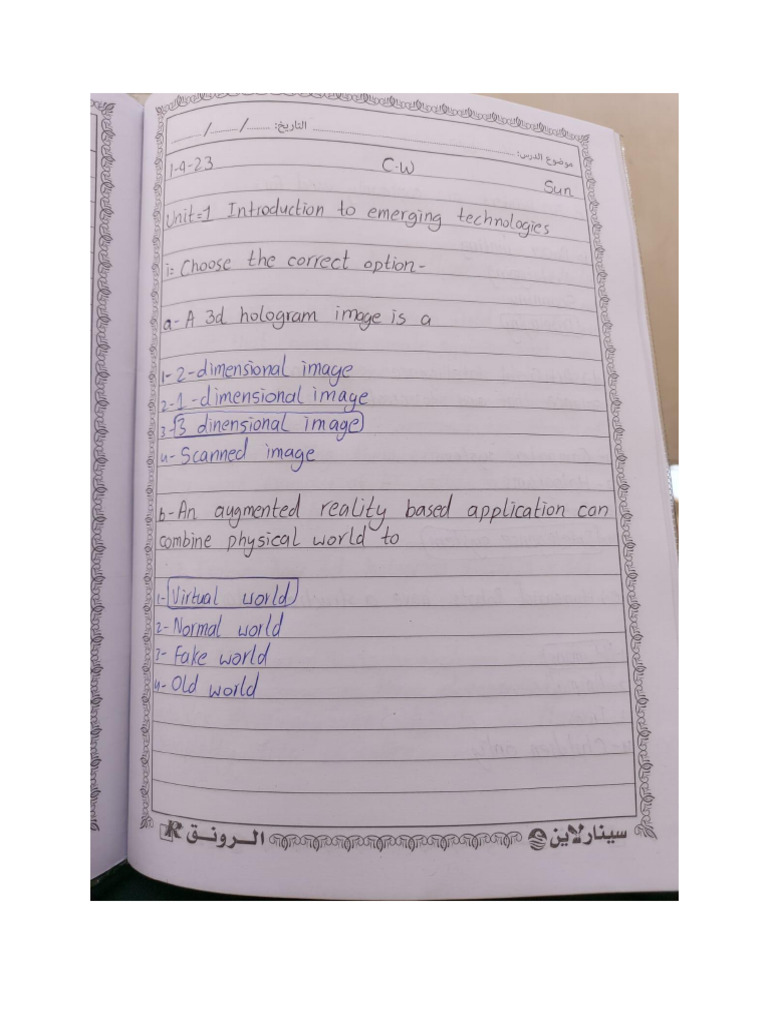 التاريخ: ....... / ....... / .......
موضوع الدرس:
1-9-23 C.W
Sun
Unit=1 Introduction to emerging technologies
i= Choose the correct option-
a- A 3d hologram image is a
1- 2-dimensional image
2- 1-dimensional image
3- 3 dinensional image
4- Scanned image
b- An augmented reality based application can
combine physical world to
1- Virtual world
2- Normal world
3- Fake world
4- Old world
الرونق سينارلاين